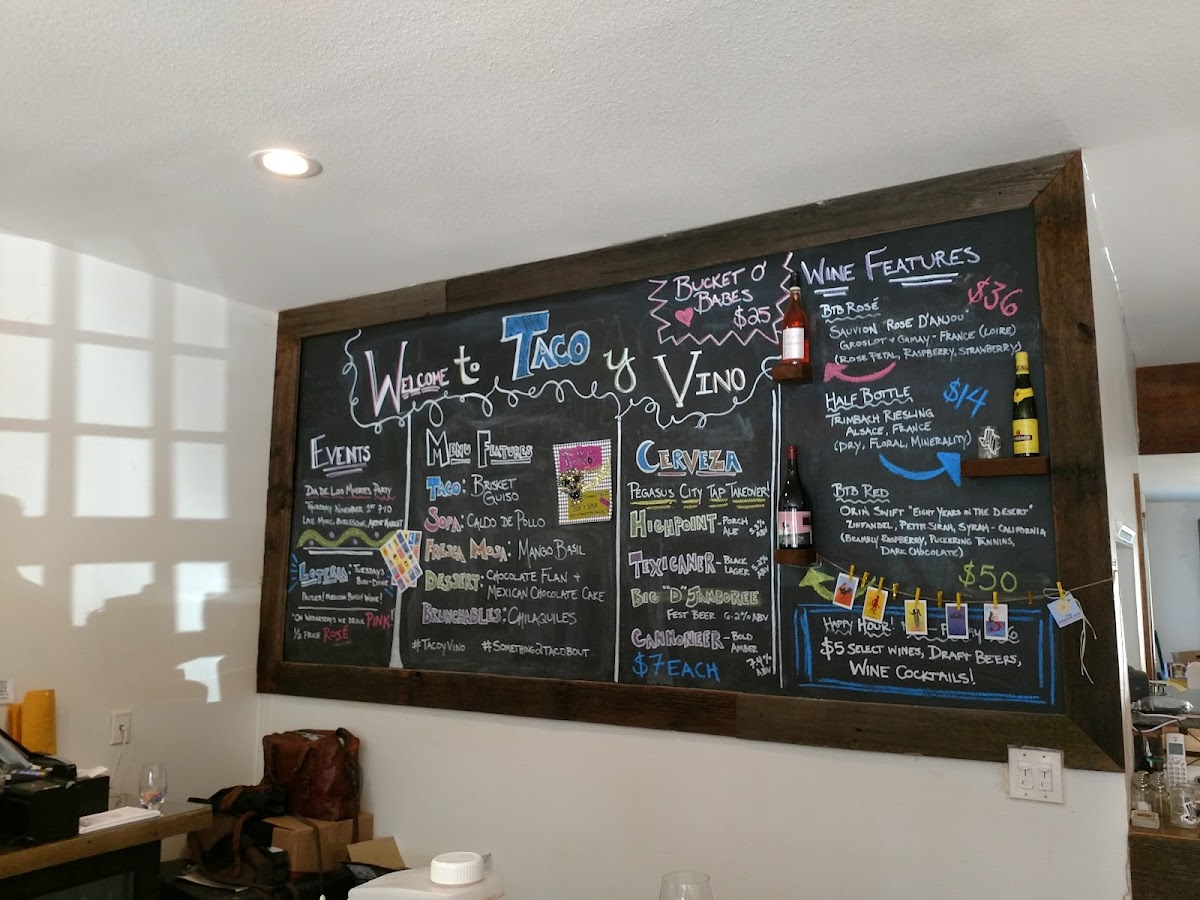 WELCOME to TACO y VINO
BUCKET O'
BABES
$25
EVENTS
DIA DE LOS MUERTOS PARTY
THURSDAY NOVEMBER 1ST 7-10
LIVE MUSIC, BURLESQUE, ARTIST MARKET
LOTERIA: TUESDAYS
PRIZES! MEXICAN BINGO! WINE!
"ON WEDNESDAYS WE DRINK PINK!"
1/2 PRICE ROSÉ
MENU FEATURES
TACO: BRISKET
GUISO
SOPA: CALDO DE POLLO
FRESCA MOSA: MANGO BASIL
DESSERT: CHOCOLATE FLAN +
MEXICAN CHOCOLATE CAKE
BRUNCHABLES: CHILAQUILES
#TACOYVINO #SOMETHING2TACOBOUT
CERVEZA
PEGASUS CITY TAP TAKEOVER!
HIGHPOINT - PORCH
ALE 5.2%
ABV
TEXICANER - BLACK
LAGER 5.2%
ABV
BIG "D" JAMBOREE
FEST BEER 6.2% ABV
CANNONEER - BOLD
AMBER
7.4%
ABV
$7 EACH
WINE FEATURES
BTB ROSÉ
$36
SAUVION "ROSE D'ANJOU"
GROSLOT + GAMAY - FRANCE (LOIRE)
(ROSE PETAL, RASPBERRY, STRAWBERRY)
HALF BOTTLE
$14
TRIMBACH RIESLING
ALSACE, FRANCE
(DRY, FLORAL, MINERALITY)
BTB RED
ORIN SWIFT "EIGHT YEARS IN THE DESERT"
ZINFANDEL, PETIT SIRAH, SYRAH - CALIFORNIA
(BRAMBLY RASPBERRY, PUCKERING TANNINS,
DARK CHOCOLATE)
$50
HAPPY HOUR!
$5 SELECT WINES, DRAFT BEERS,
WINE COCKTAILS!